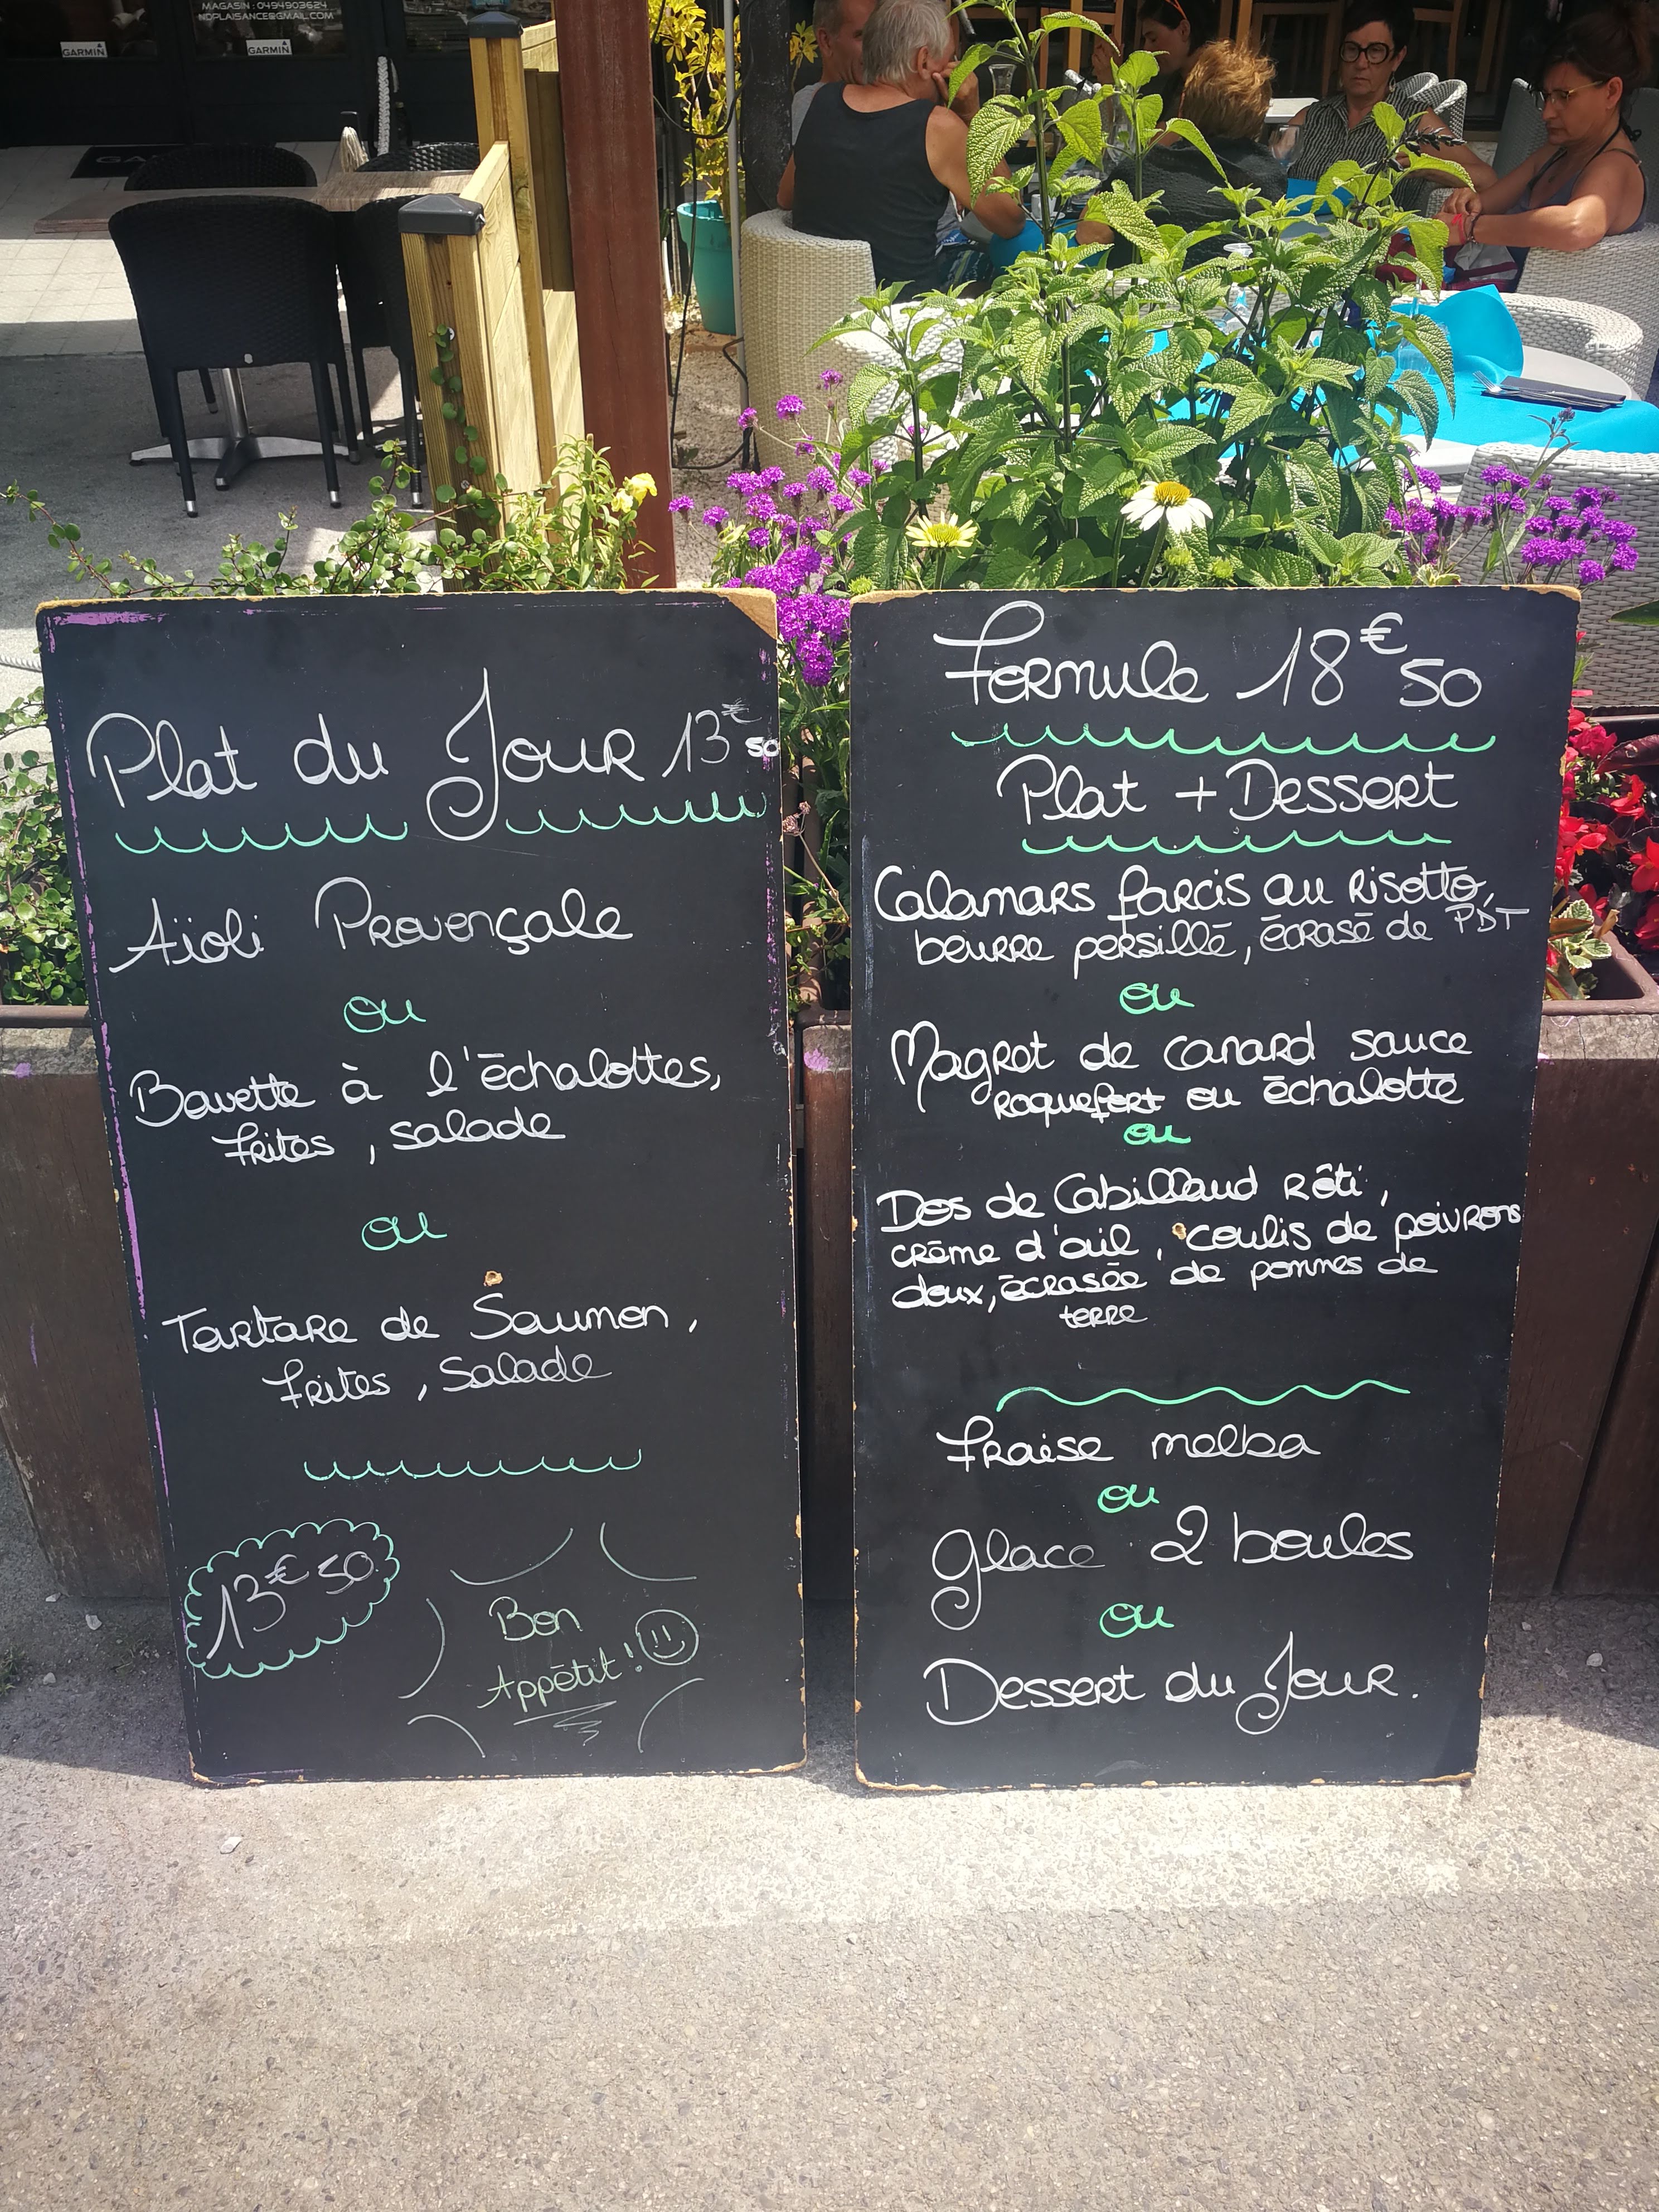 MAGASIN : 0494903624
NDPLAISANCE@GMAIL.COM
GARMIN
GARMIN
Plat du Jour 13€50
Aïoli Provençale
ou
Bavette à l'échalottes,
frites, salade
ou
Tartare de Saumon,
frites, salade
13€50
Bon
Appétit!
Formule 18€50
Plat + Dessert
Calamars farcis au risotto,
beurre persillé, écrasé de PDT
ou
Magret de canard sauce
roquefort ou échalotte
ou
Dos de Cabillaud rôti,
crème d'ail, coulis de poivrons
doux, écrasée de pommes de
terre
Fraise melba
ou
Glace 2 boules
ou
Dessert du Jour.